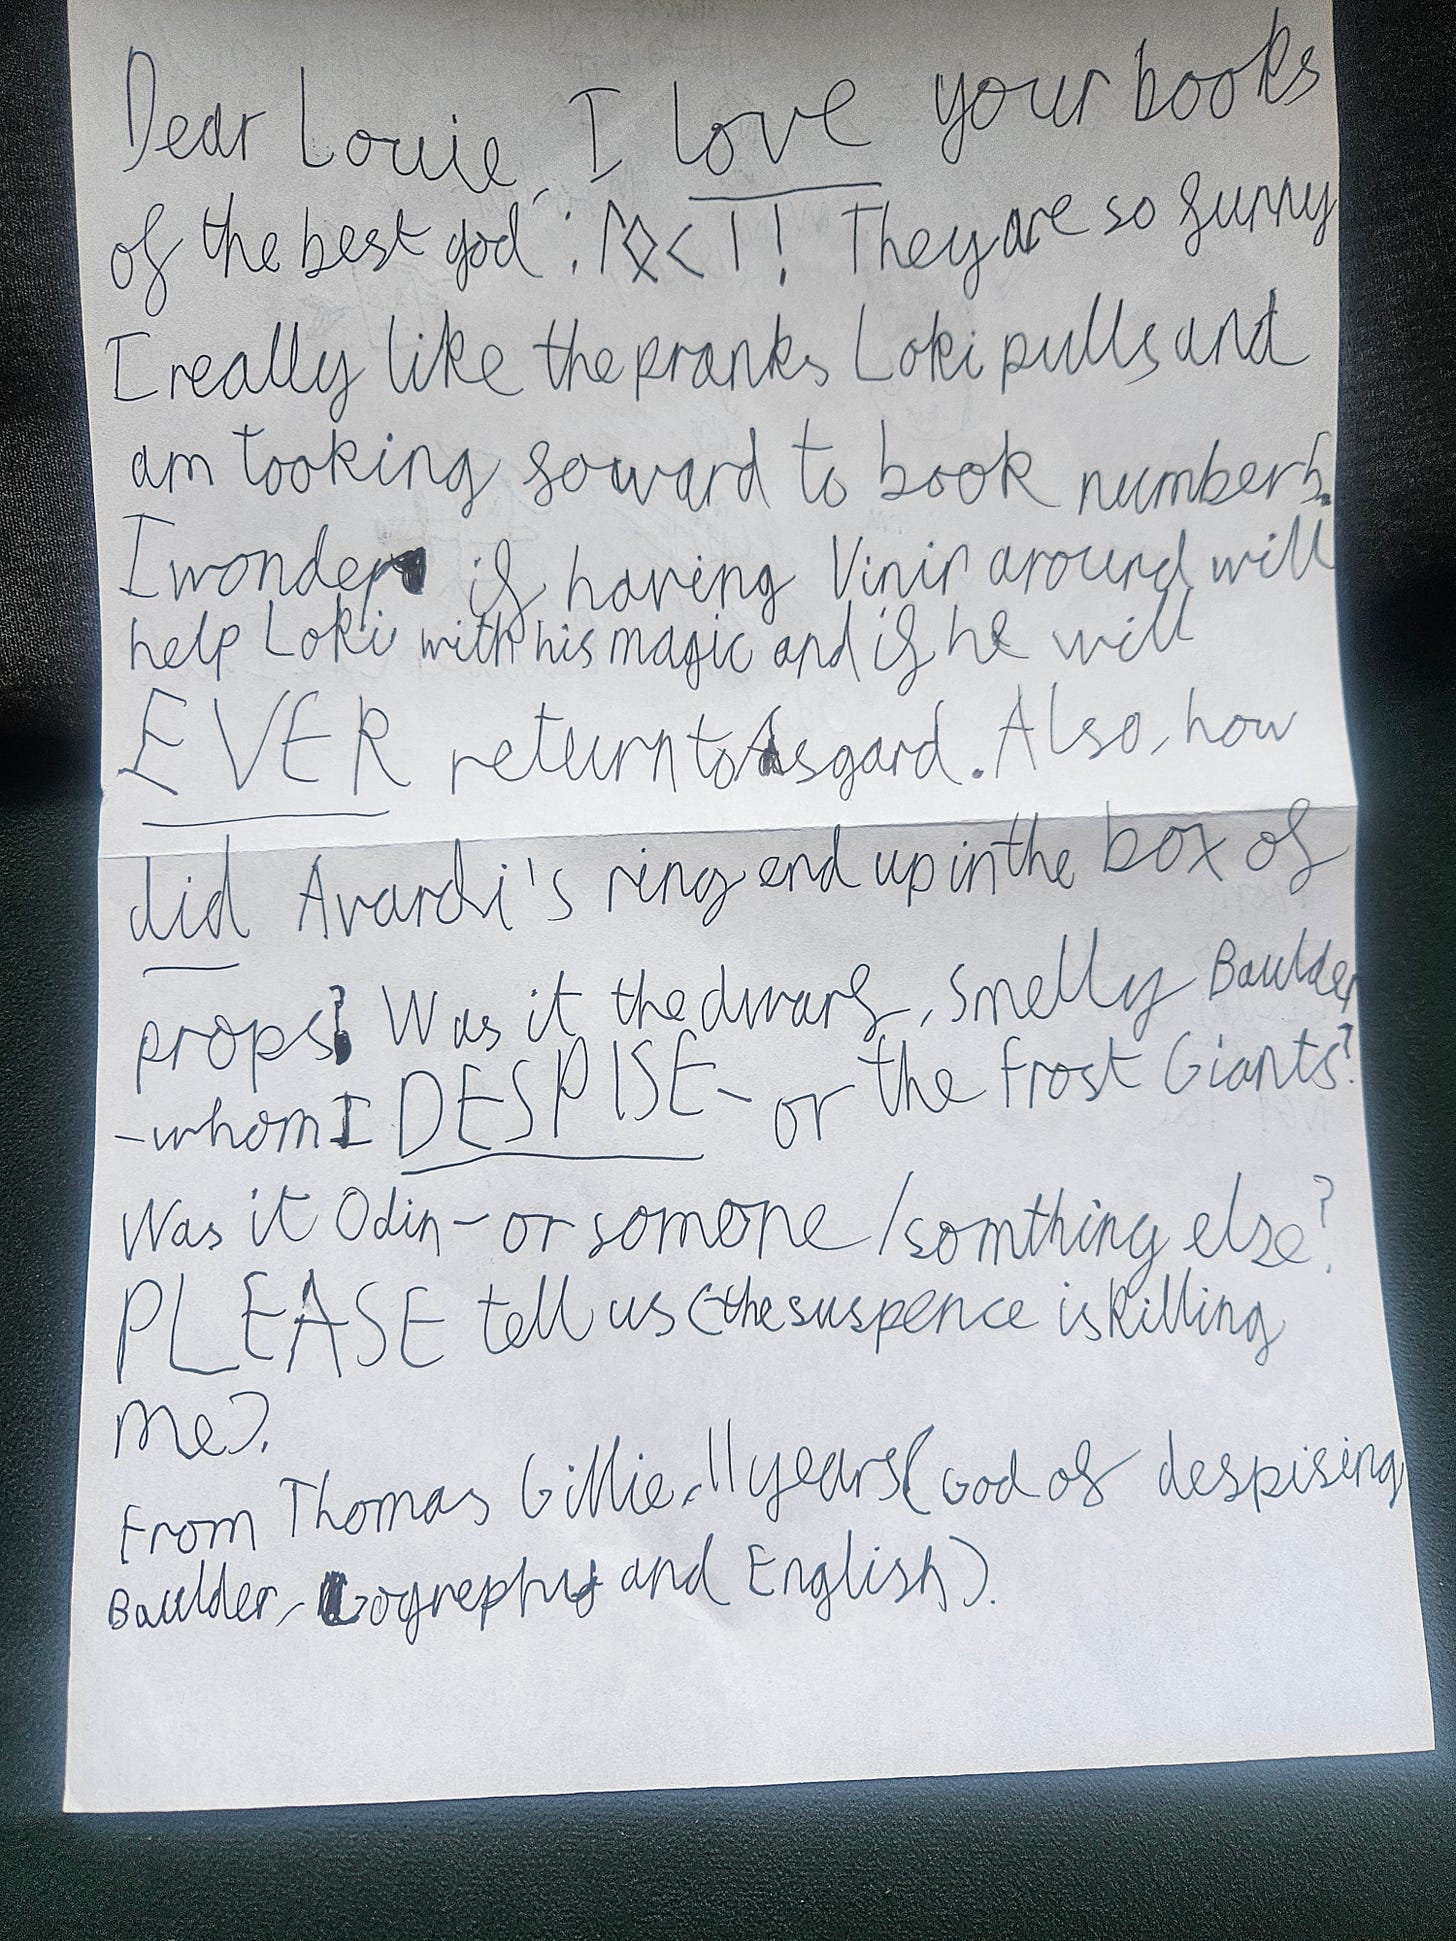 Dear Louie, I love your books
of the best god : ᛚᛟᚲᛁ! They are so funny
I really like the pranks Loki pulls and
am looking foward to book number 5.
I wonder if having Vinir around will
help Loki with his magic and if he will
EVER return to Asgard. Also, how
did Avardi's ring end up in the box of
props? Was it the dwarf, Smelly Baulder
-whom I DESPISE- or the Frost Giants?
Was it Odin - or somone /somthing else?
PLEASE tell us (the suspence is killing
me).
From Thomas Gillie, 11 years (God of despising
Baulder, and English).